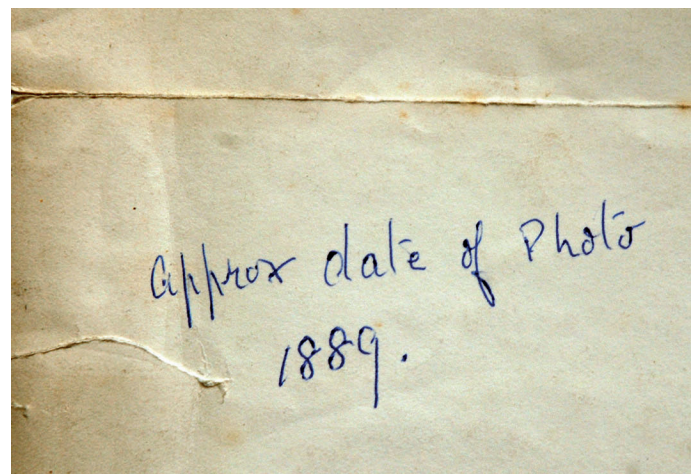 approx date of Photo
1889.